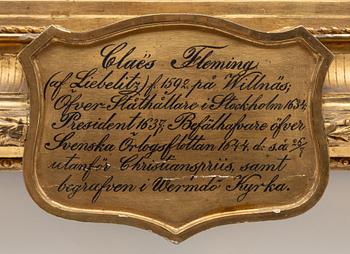 Claës Fleming
(af Liebelitz) f. 1592 på Willnäs;
Öfver-Ståthållare i Stockholm 1634,
President 1637; Befälhafvare öfver
Svenska Örlogsflottan 1644. d: s.å 26/7
utanför Christianspriis, samt
begrafven i Wermdö Kyrka.